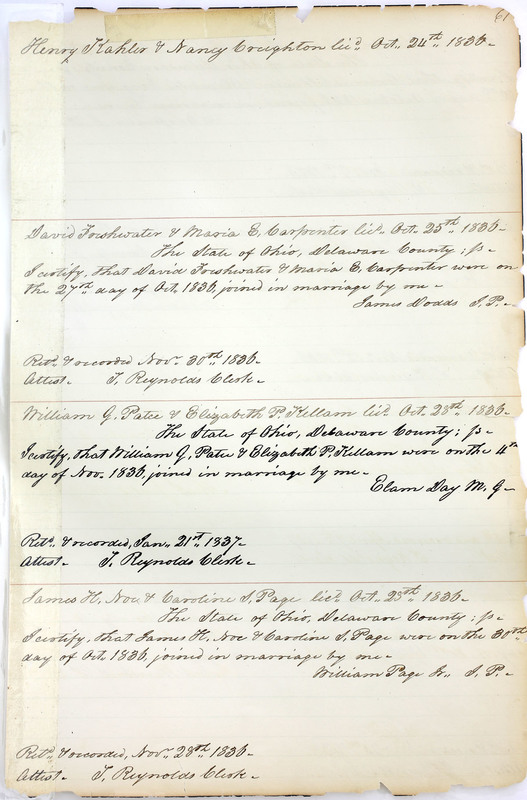 61
Henry Kahler & Nancy Creighton lic'd. Oct,, 24th 1836-
David Freshwater & Maria E, Carpenter lic'd. Oct. 25th 1836-
The State of Ohio, Delaware County; ss-
I certify, that David Freshwater & Maria E, Carpenter were on
the 27th day of Oct. 1836, joined in marriage by me-
James Dodds J. P.-
Ret'd. & recorded Nov'r 30th 1836-
Attest- T. Reynolds Clerk-
William G, Patee & Elizabeth P. Kellam lic'd. Oct. 28th 1836-
The State of Ohio, Delaware County; ss-
I certify, that William G, Patee & Elizabeth P. Kellam were on the 4th
day of Nov. 1836, joined in marriage by me-
Elam Day M. G-
Ret'd. & recorded, Jan,, 21st 1837-
Attest- T. Reynolds Clerk-
James H, Noe & Caroline S, Page lic'd. Oct,, 25th 1836-
The State of Ohio, Delaware County; ss-
I certify, that James H. Noe & Caroline S, Page were on the 30th
day of Oct. 1836, joined in marriage by me-
William Page Jr,, J. P.-
Ret'd. & recorded, Nov'r 28th 1836-
Attest- T. Reynolds Clerk-